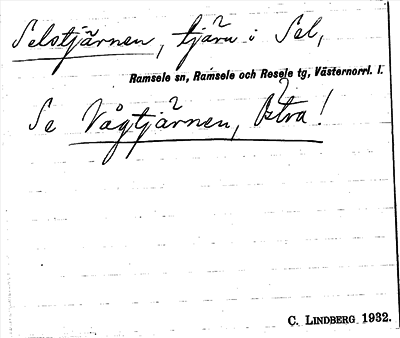 Selstjärnen, tjärn i Sel,
Ramsele sn, Ramsele och Resele tg, Västernorrl. l.
Se Vågtjärnen, Östra!
C. LINDBERG 1932.